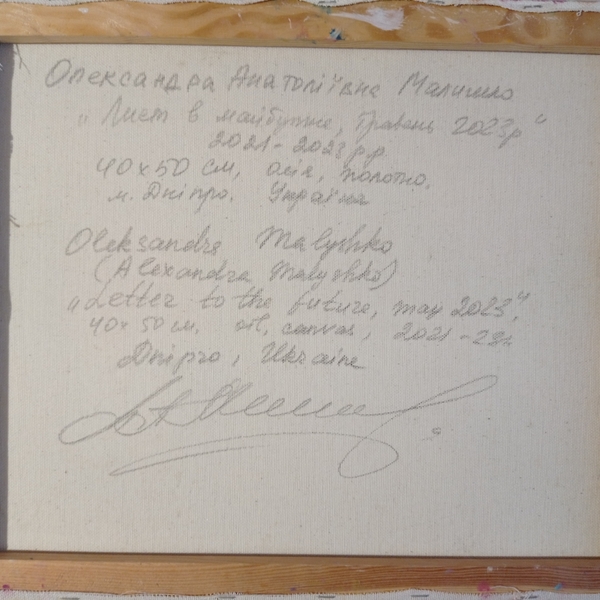 Олександра Анатоліївна Малишко
„Лист в майбутнє, Травень 2023р“
2021-2023 р.р.
40х50 см, олія, полотно.
м. Дніпро. Україна
Oleksandra Malyshko
(Alexandra Malyshko)
„Letter to the future, may 2023“,
40х50 см, oil, canvas, 2021-23
Dнipro, Ukraine